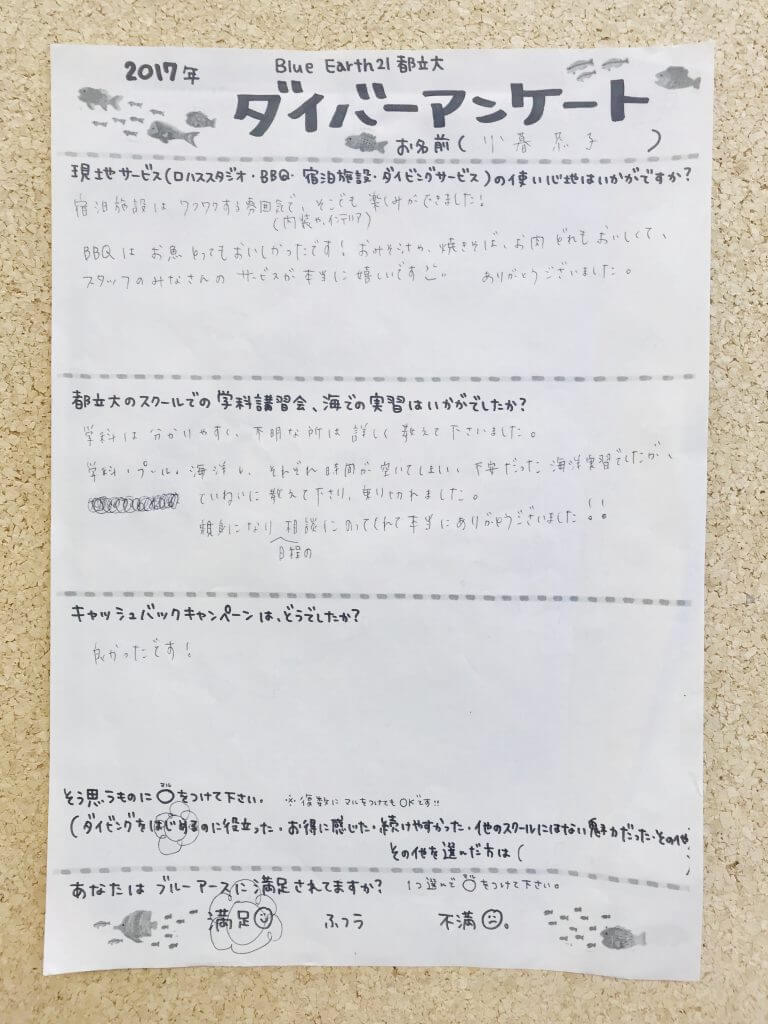 2017年
Blue Earth21都立大
ダイバーアンケート
お名前( 小暮 恭子 )
現地サービス(ロハススタジオ・BBQ・宿泊施設・ダイビングサービス)の使い心地はいかがですか?
宿泊施設は ワクワクする雰囲気で、そこでも 楽しみができました!
(内装や、インテリア)
BBQは お魚とってもおいしかったです! おみそ汁や、焼きそば、お肉 どれもおいしくて、
スタッフのみなさんの サービスが 本当に 嬉しいです ありがとうございました。
都立大のスクールでの学科講習会、海での実習はいかがでしたか?
学科は 分かりやすく、不明な所は 詳しく 教えて下さいました。
学科・プール・海洋と、それぞれ時間が空いてしまい、不安だった海洋実習でしたが、
ていねいに教えて下さり、乗り切れました。
親身になり 相談にのってくれて本当にありがとうございました!!
日程の
キャッシュバックキャンペーンは、どうでしたか?
良かったです!
そう思うものに○をつけて下さい。 ※複数にマルをつけてもOKです!!
マル
(ダイビングをはじめるのに役立った・お得に感じた・続けやすかった・他のスクールにはない魅力だった・その他)
その他を選んだ方は(
あなたは ブルーアースに満足されてますか? 1つ選んで○をつけて下さい。
満足 ふつう 不満 。